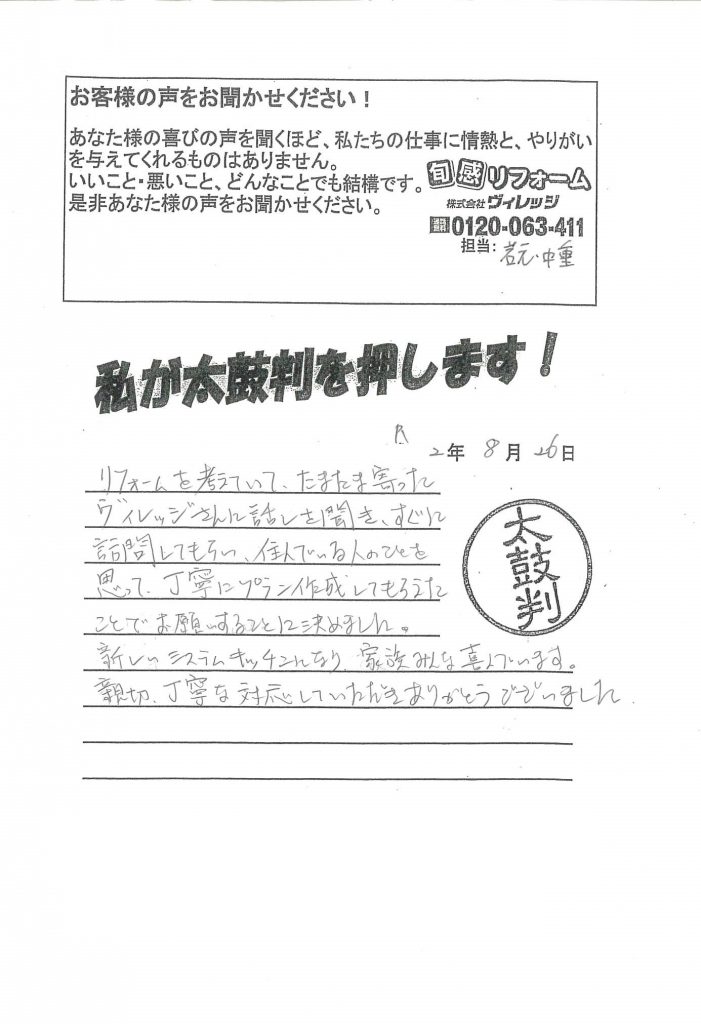 お客様の声をお聞かせください！
あなた様の喜びの声を聞くほど、私たちの仕事に情熱と、やりがい
を与えてくれるものはありません。
いいこと・悪いこと、どんなことでも結構です。
是非あなた様の声をお聞かせください。
旬感リフォーム
株式会社ヴィレッジ
0120-063-411
担当：岩元・中重
私が太鼓判を押します！
R 2年 8月 26日
リフォームを考えていて、たまたま寄った
ヴィレッジさんに話しを聞き、すぐに
訪問してもらい、住んでいる人のことを
思って、丁寧にプラン作成してもらえた
ことでお願いすることに決めました。
新しいシステムキッチンになり、家族みんな喜んでいます。
親切、丁寧な対応していただきありがとうございました
太鼓判